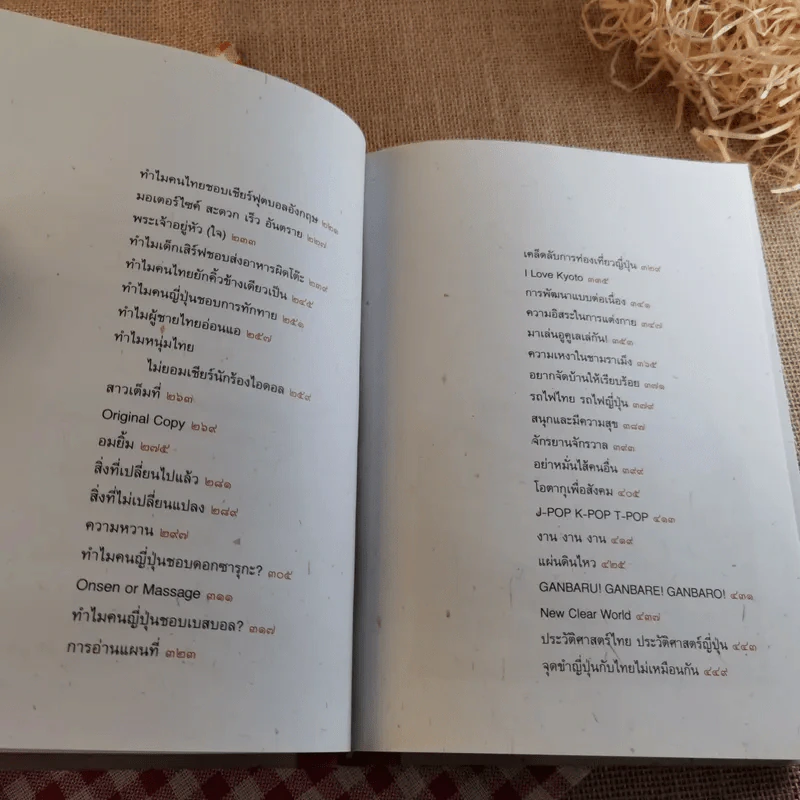 ทำไมคนไทยชอบเชียร์ฟุตบอลอังกฤษ ๒๒๑
มอเตอร์ไซค์ สะดวก เร็ว อันตราย ๒๒๗
พระเจ้าอยู่หัว (ใจ) ๒๓๓
ทำไมเด็กเสิร์ฟชอบส่งอาหารผิดโต๊ะ ๒๓๙
ทำไมคนไทยยักคิ้วข้างเดียวเป็น ๒๔๕
ทำไมคนญี่ปุ่นชอบการทักทาย ๒๕๑
ทำไมผู้ชายไทยอ่อนแอ ๒๕๗
ทำไมหนุ่มไทย
ไม่ยอมเชียร์นักร้องไอดอล ๒๕๙
สาวเต็มที่ ๒๖๗
Original Copy ๒๖๙
อมยิ้ม ๒๗๕
สิ่งที่เปลี่ยนไปแล้ว ๒๘๑
สิ่งที่ไม่เปลี่ยนแปลง ๒๘๙
ความหวาน ๒๙๗
ทำไมคนญี่ปุ่นชอบดอกซารุกะ? ๓๐๕
Onsen or Massage ๓๑๑
ทำไมคนญี่ปุ่นชอบเบสบอล? ๓๑๗
การอ่านแผนที่ ๓๒๓
เคล็ดลับการท่องเที่ยวญี่ปุ่น ๓๒๙
I Love Kyoto ๓๓๕
การพัฒนาแบบต่อเนื่อง ๓๔๑
ความอิสระในการแต่งกาย ๓๔๗
มาเล่นอูคูเลเล่กัน! ๓๕๑
ความเหงาในชามราเม็ง ๓๖๕
อยากจัดบ้านให้เรียบร้อย ๓๗๑
รถไฟไทย รถไฟญี่ปุ่น ๓๗๙
สนุกและมีความสุข ๓๘๗
จักรยานจักรวาล ๓๙๓
อย่าหมั่นไส้คนอื่น ๓๙๙
โอตากุเพื่อสังคม ๔๐๕
J-POP K-POP T-POP ๔๑๓
งาน งาน งาน ๔๑๙
แผ่นดินไหว ๔๒๕
GANBARU! GANBARE! GANBARO! ๔๓๑
New Clear World ๔๓๗
ประวัติศาสตร์ไทย ประวัติศาสตร์ญี่ปุ่น ๔๔๓
จุดขำญี่ปุ่นกับไทยไม่เหมือนกัน ๔๔๙